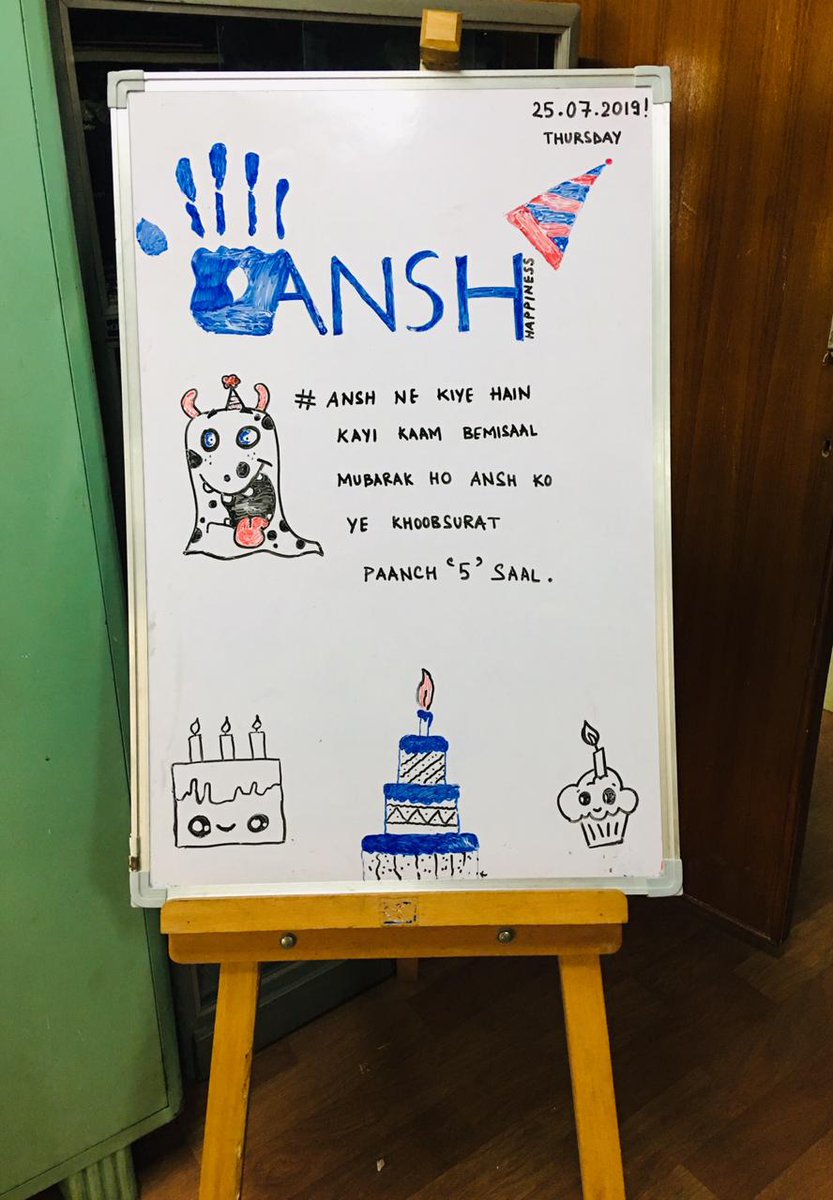 25.07.2019!
THURSDAY
ANSH
HAPPINESS
# ANSH NE KIYE HAIN
KAYI KAAM BEMISAAL
MUBARAK HO ANSH KO
YE KHOOBSURAT
PAANCH '5' SAAL.